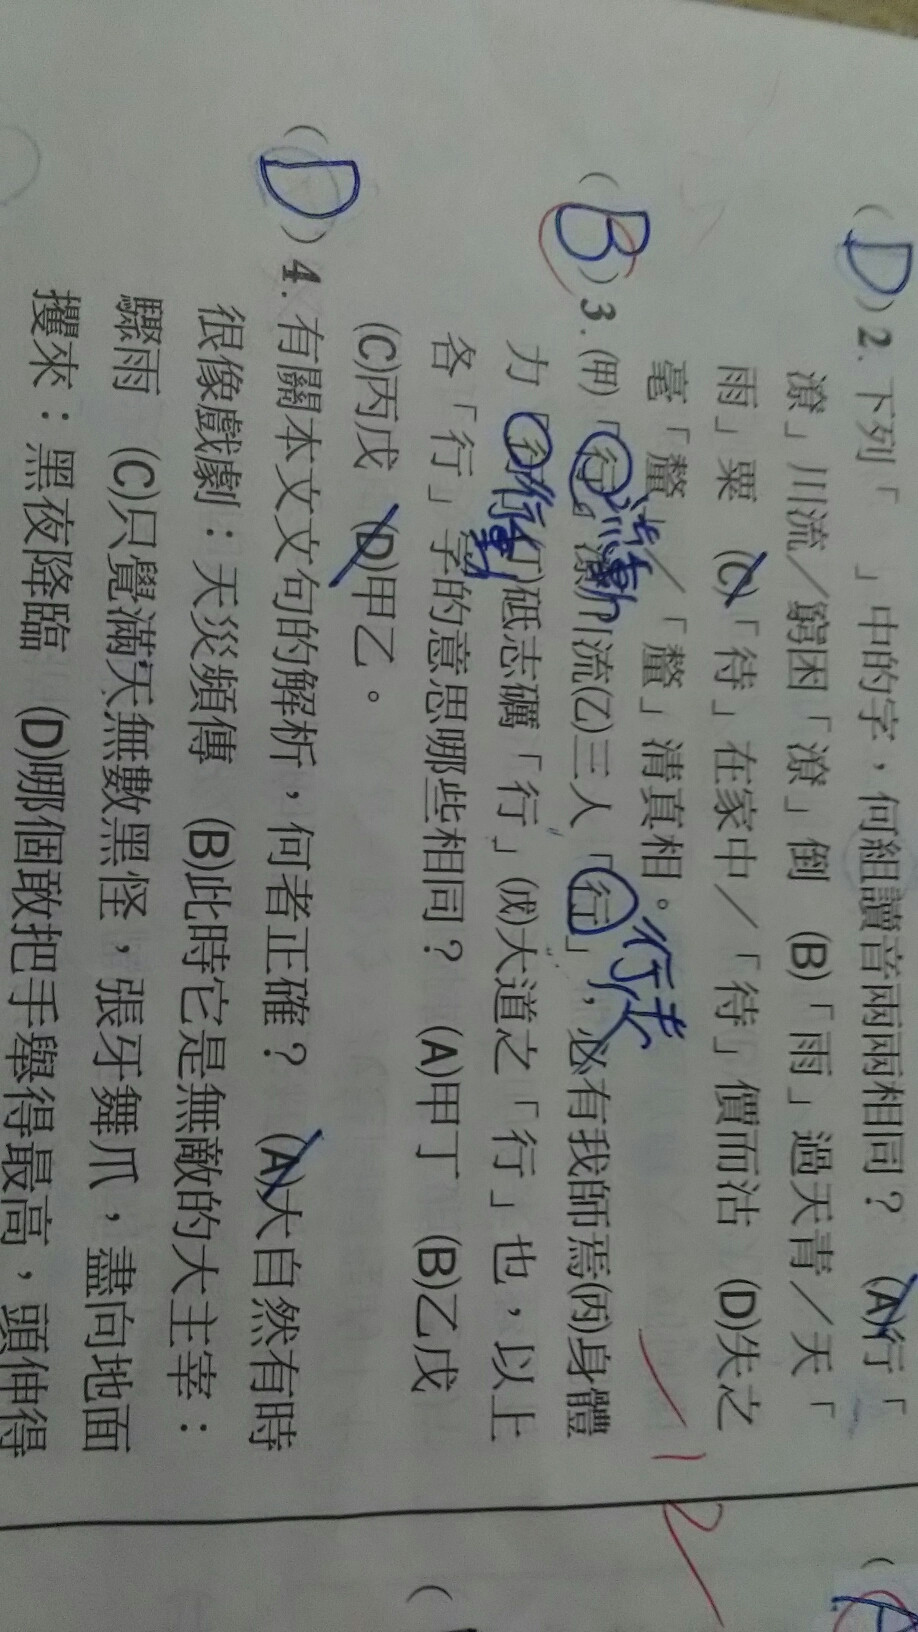 ( D ) 2. 下列「 」中的字，何組讀音兩兩相同？ (A)行「
潦」川流／窮困「潦」倒 (B)「雨」過天青／天「
雨」粟 (C)「待」在家中／「待」價而沽 (D)失之
毫「釐」／「釐」清真相。
流動
行走
( B ) 3. (甲)「行」潦川流(乙)三人「行」，必有我師焉(丙)身體
力「行」(丁)砥志礪「行」(戊)大道之「行」也，以上
行動
各「行」字的意思哪些相同？ (A)甲丁 (B)乙戊
(C)丙戊 (D)甲乙。
( D ) 4. 有關本文文句的解析，何者正確？ (A)大自然有時
很像戲劇：天災頻傳 (B)此時它是無敵的大主宰：
驟雨 (C)只覺滿天無數黑怪，張牙舞爪，盡向地面
攫來：黑夜降臨 (D)哪個敢把手舉得最高，頭伸得
( A
(